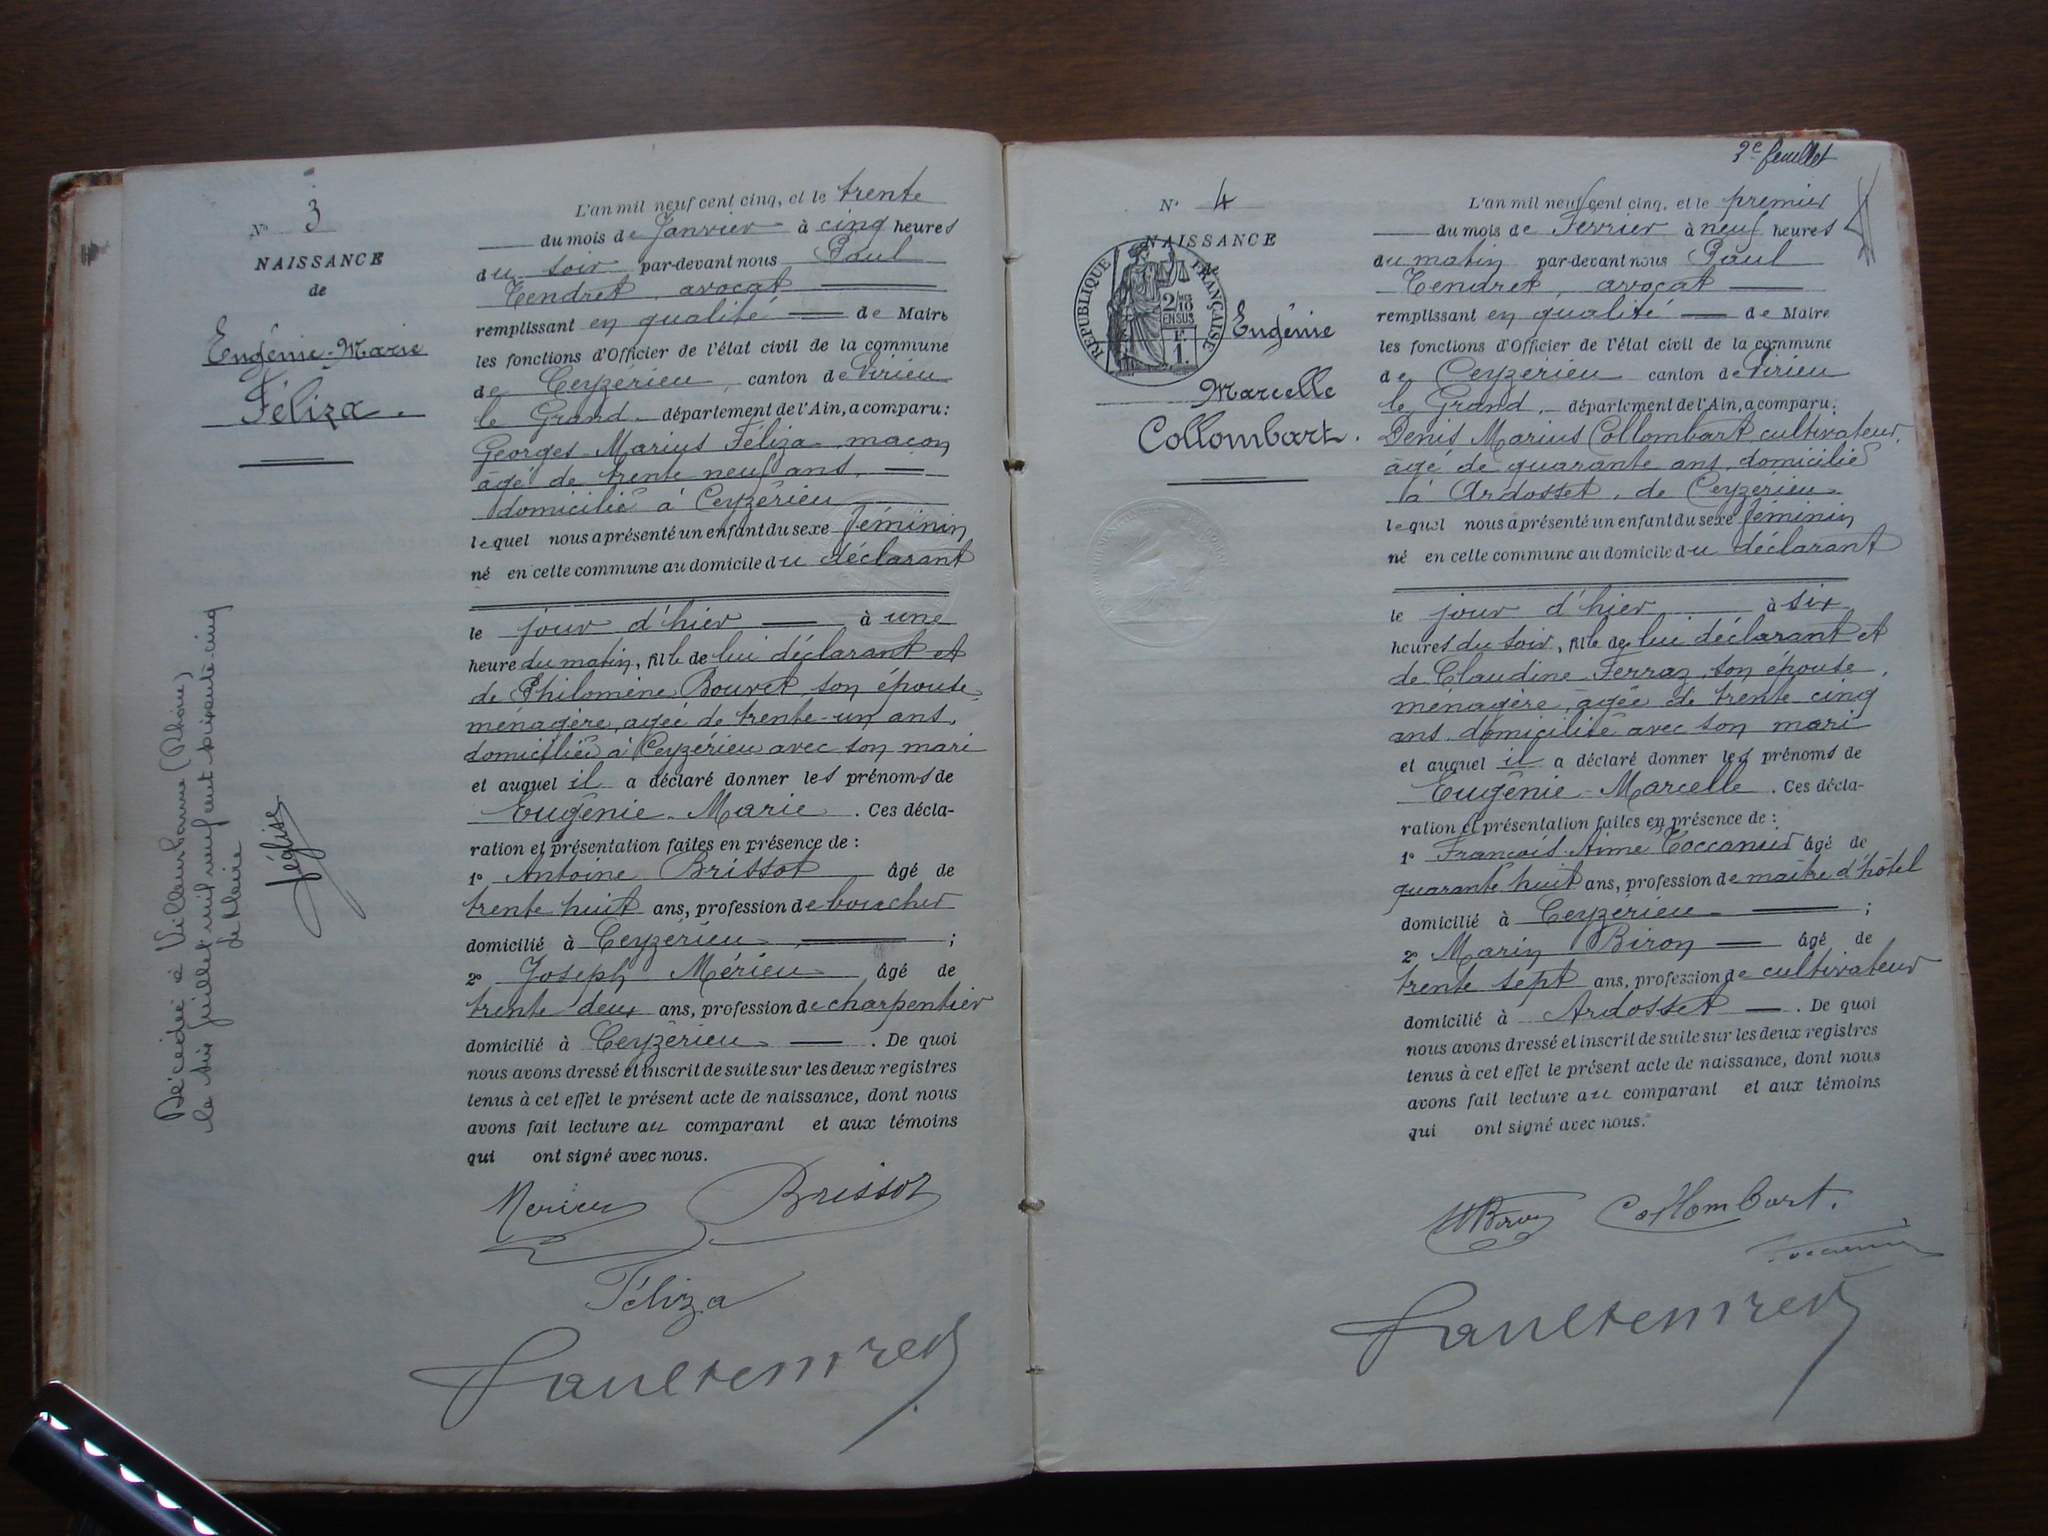 N° 3
NAISSANCE
de
Eugénie-Marie
Féliza.
Décédée à Villeurbanne (Rhône)
le six juillet mil neuf cent soixante-cinq
le Maire
L'an mil neuf cent cinq, et le trente
du mois de Janvier à cinq heures
du soir par-devant nous Paul
Tendret, avocat
remplissant en qualité de Maire
les fonctions d'Officier de l'état civil de la commune
de Ceyzérieu, canton de Virieu
le Grand. département de l'Ain, a comparu:
Georges-Marius Féliza, maçon
âgé de trente neuf ans,
domicilié à Ceyzérieu
lequel nous a présenté un enfant du sexe féminin
né en cette commune au domicile du déclarant
le jour d'hier à une
heure du matin, fille de lui déclarant et
de Philomène Bouvet, son épouse,
ménagère, agée de trente-un ans,
domiciliée à Ceyzérieu avec son mari
et auquel il a déclaré donner les prénoms de
Eugénie-Marie. Ces décla-
ration et présentation faites en présence de :
1° Antoine Brissot âgé de
trente huit ans, profession de boucher
domicilié à Ceyzérieu ;
2° Joseph Mérieu âgé de
trente deux ans, profession de charpentier
domicilié à Ceyzérieu. De quoi
nous avons dressé et inscrit de suite sur les deux registres
tenus à cet effet le présent acte de naissance, dont nous
avons fait lecture au comparant et aux témoins
qui ont signé avec nous.
Merieu Brissot
Féliza
Paul Tendret
2e feuillet
N° 4
NAISSANCE
de
RÉPUBLIQUE FRANÇAISE
2/10 EN SUS
F. 1.
Eugénie
Marcelle
Collombart.
L'an mil neuf cent cinq, et le premier
du mois de Fevrier à neuf heures
du matin par-devant nous Paul
Tendret, avocat
remplissant en qualité de Maire
les fonctions d'Officier de l'état civil de la commune
de Ceyzerieu canton de Virieu
le Grand, département de l'Ain, a comparu:
Denis Marius Collombart cultivateur,
âgé de quarante ans, domicilié
à Ardosset, de Ceyzerieu
lequel nous a présenté un enfant du sexe féminin
né en cette commune au domicile du déclarant
le jour d'hier à six
heures du soir, fille de lui déclarant et
de Claudine Ferraz, son épouse,
ménagère, âgée de trente cinq
ans, domiciliée avec son mari
et auquel il a déclaré donner les prénoms de
Eugénie-Marcelle. Ces décla-
ration et présentation faites en présence de :
1° François-Aimé Toccanier âgé de
quarante huit ans, profession de maître d'hôtel
domicilié à Ceyzérieu ;
2° Marin Biron âgé de
trente sept ans, profession de cultivateur
domicilié à Ardosset. De quoi
nous avons dressé et inscrit de suite sur les deux registres
tenus à cet effet le présent acte de naissance, dont nous
avons fait lecture au comparant et aux témoins
qui ont signé avec nous.
MBiron Collombart.
Toccanier
Paul Tendret